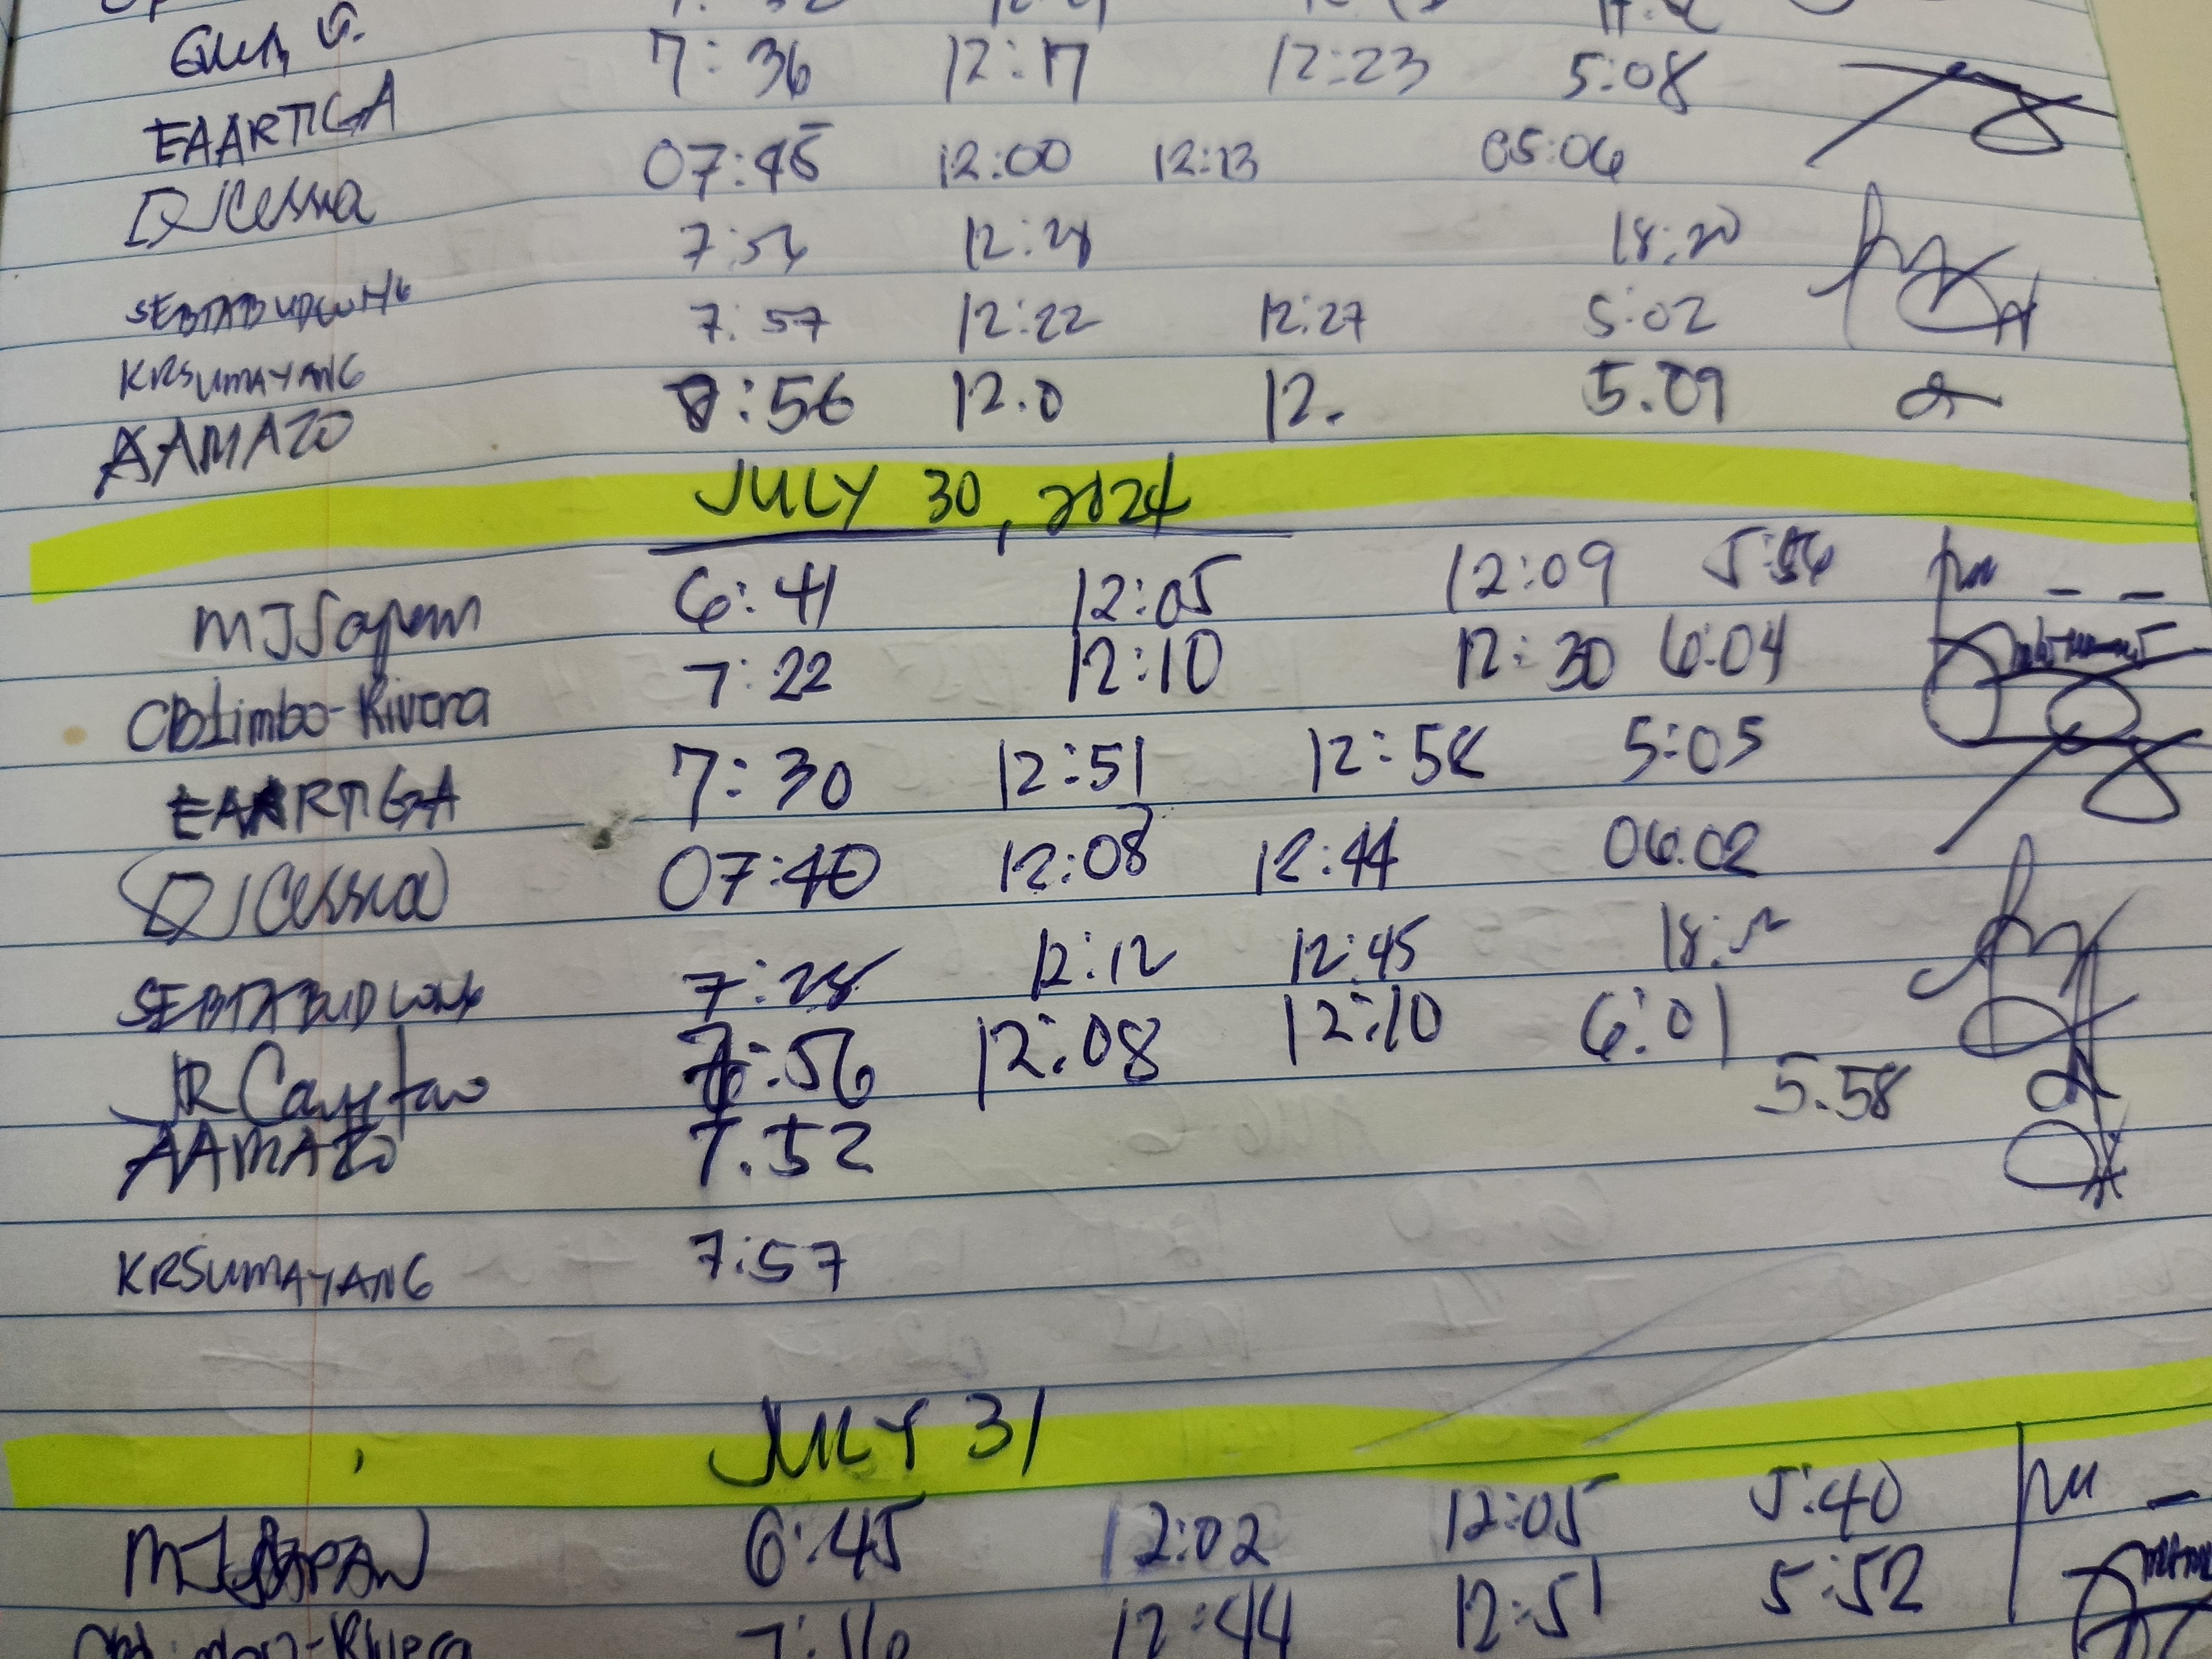 7:36 12:17 12:23 5:08
EAARTIGA 07:45 12:00 12:13 05:06
7:54 12:28 18:20
7:57 12:22 12:27 5:02
KRSUMAYANG :56 12.0 12. 5.09
AAMAZO
JULY 30, 2024
MJSapan 6:41 12:05 12:09 5:56
CBLimbo-Rivera 7:22 12:10 12:30 6:04
EAARTIGA 7:30 12:51 12:58 5:05
07:40 12:08 12:44 06:02
SEBTABUDLONG 7:28 12:12 12:45 18:
JR 7:56 12:08 12:10 6:01
AAMAZO 7.52 5.58
KRSUMAYANG 7:57
JULY 31
MJSAPAN 6:45 12:02 12:05 5:40
-Rivera 7:16 12:44 12:51 5:52